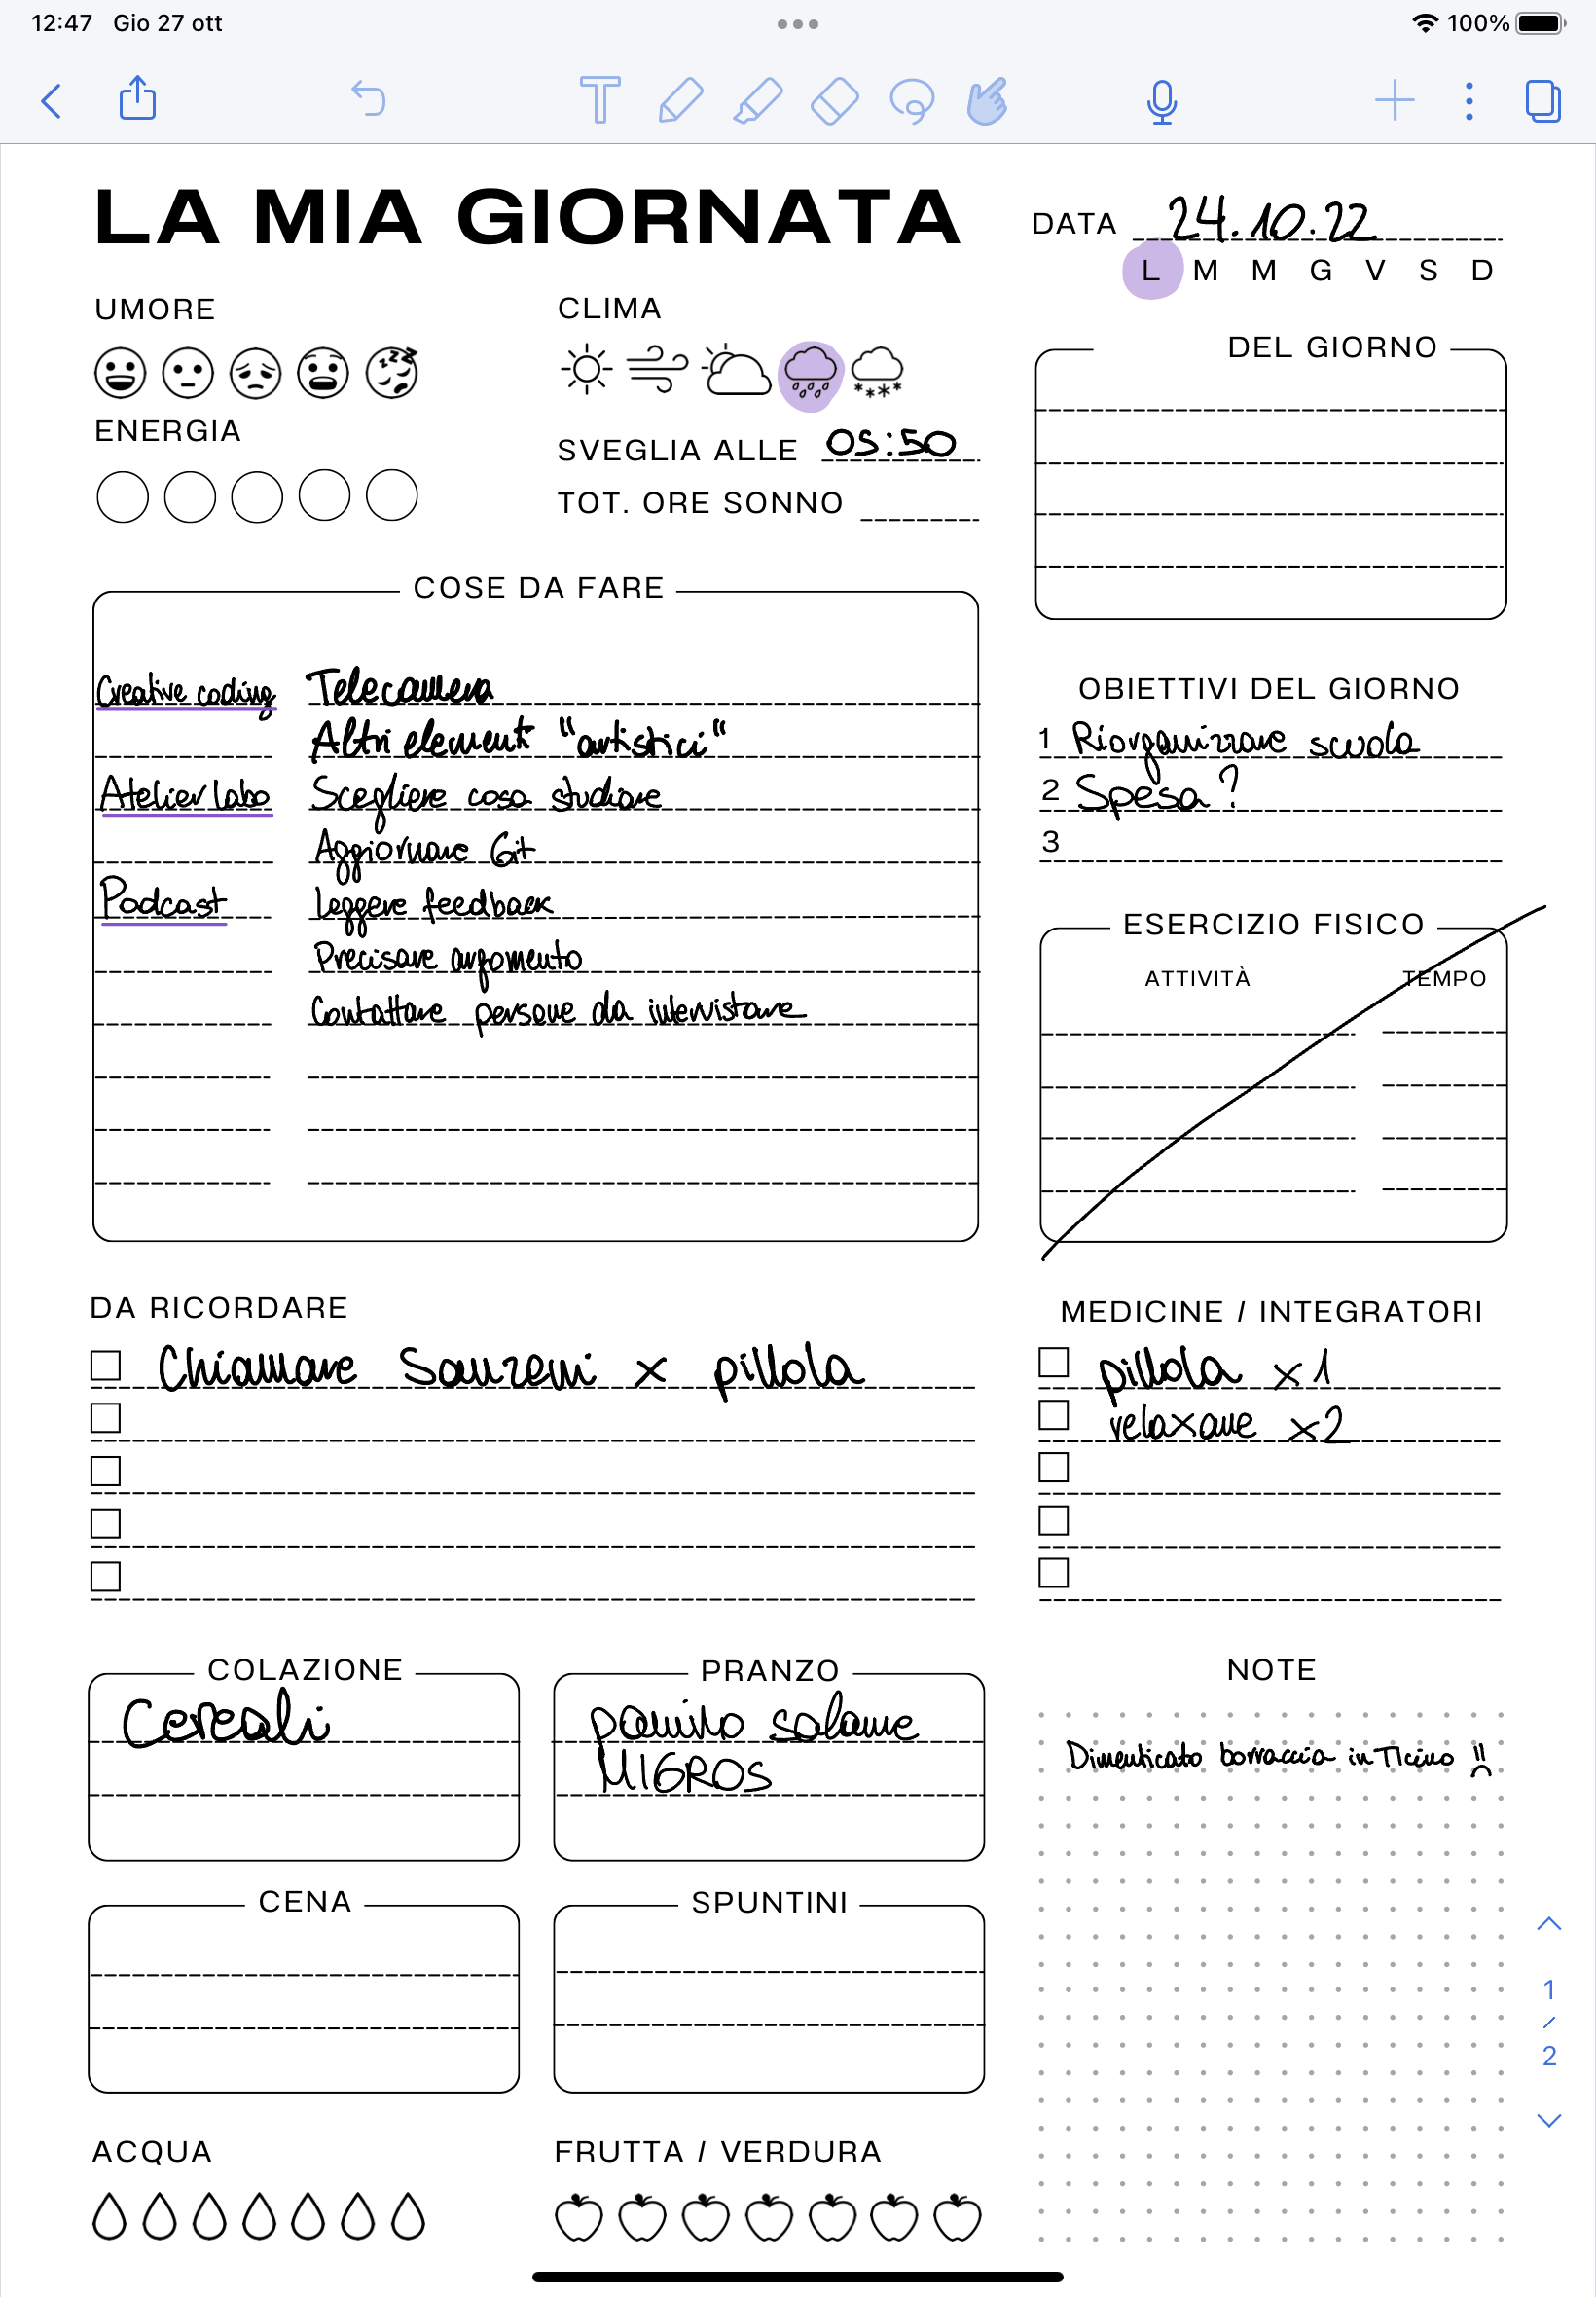 12:47 Gio 27 ott
100%
LA MIA GIORNATA
DATA 24.10.22
L M M G V S D
UMORE
CLIMA
ENERGIA
SVEGLIA ALLE 05:50
TOT. ORE SONNO
DEL GIORNO
COSE DA FARE
Creative coding Telecamera
Altri elementi "artistici"
Atelier labo Scegliere cosa studiare
Aggiornare Git
Podcast Leggere feedback
Precisare argomento
Contattare persone da intervistare
OBIETTIVI DEL GIORNO
1 Riorganizzare scuola
2 Spesa?
3
ESERCIZIO FISICO
ATTIVITÀ TEMPO
DA RICORDARE
Chiamare Sanzeni x pillola
MEDICINE / INTEGRATORI
pillola x1
relaxane x2
COLAZIONE
Cereali
PRANZO
panino salame
MIGROS
CENA
SPUNTINI
NOTE
Dimenticato borraccia in Ticino !!
1
/
2
ACQUA
FRUTTA / VERDURA